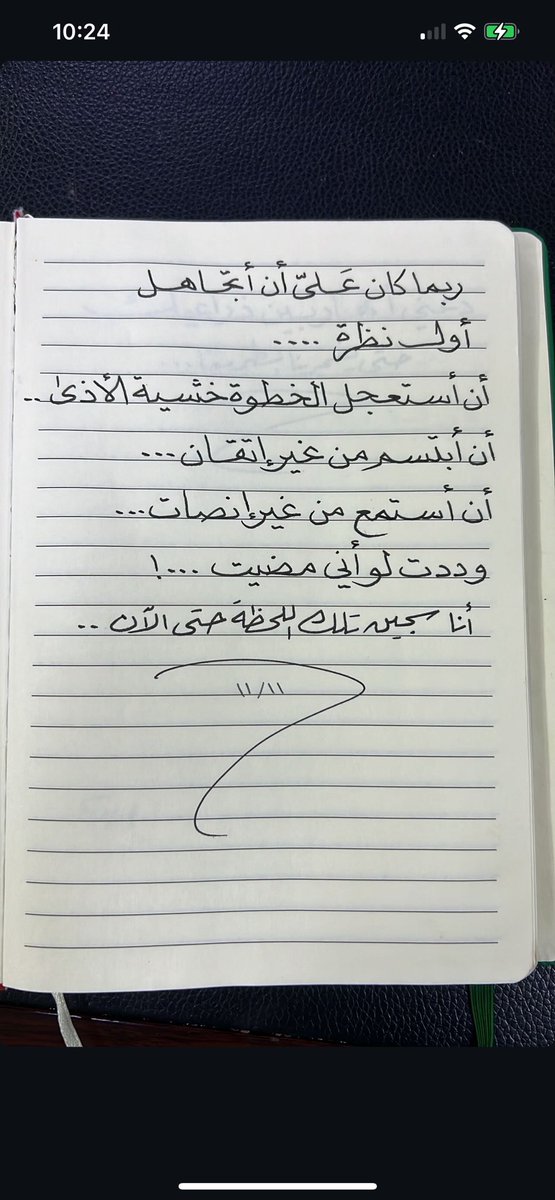 10:24
ربما كان عَليّ أن أتجّاهل
أول نظرة ....
أن أستعجل الخطوة خشية الأذىٰ..
أن أبتسم من غير إتقان...
أن أستمع من غير إنصات...
وددت لو أني مضيت ...!
أنا سجين تلك اللحظة حتى الآن ..
١١/١١